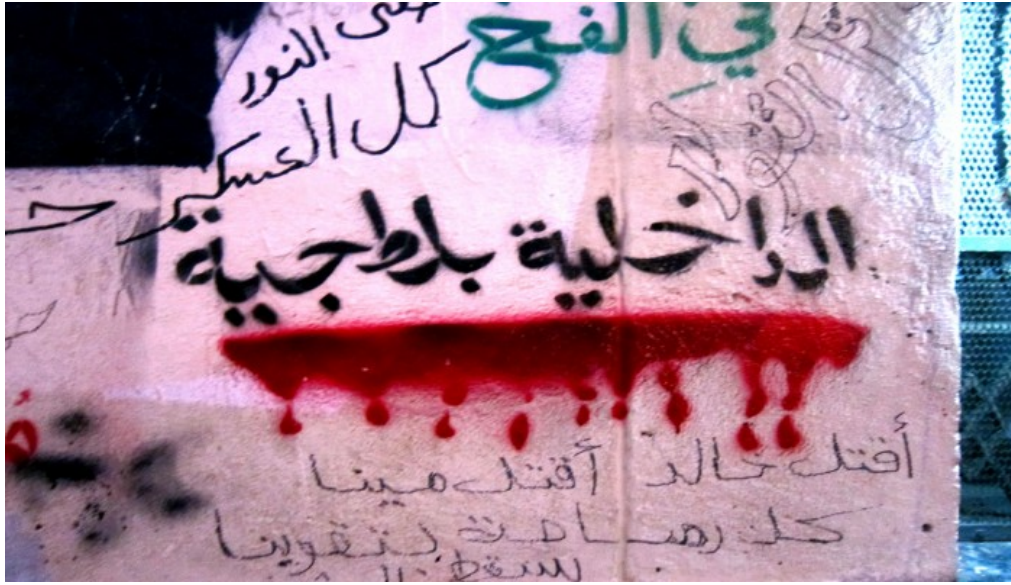 في الفخ
النور
كل العسكر
الداخلية بلطجية
أقتل خالد أقتل مينا
كل رصاصة بتقوينا